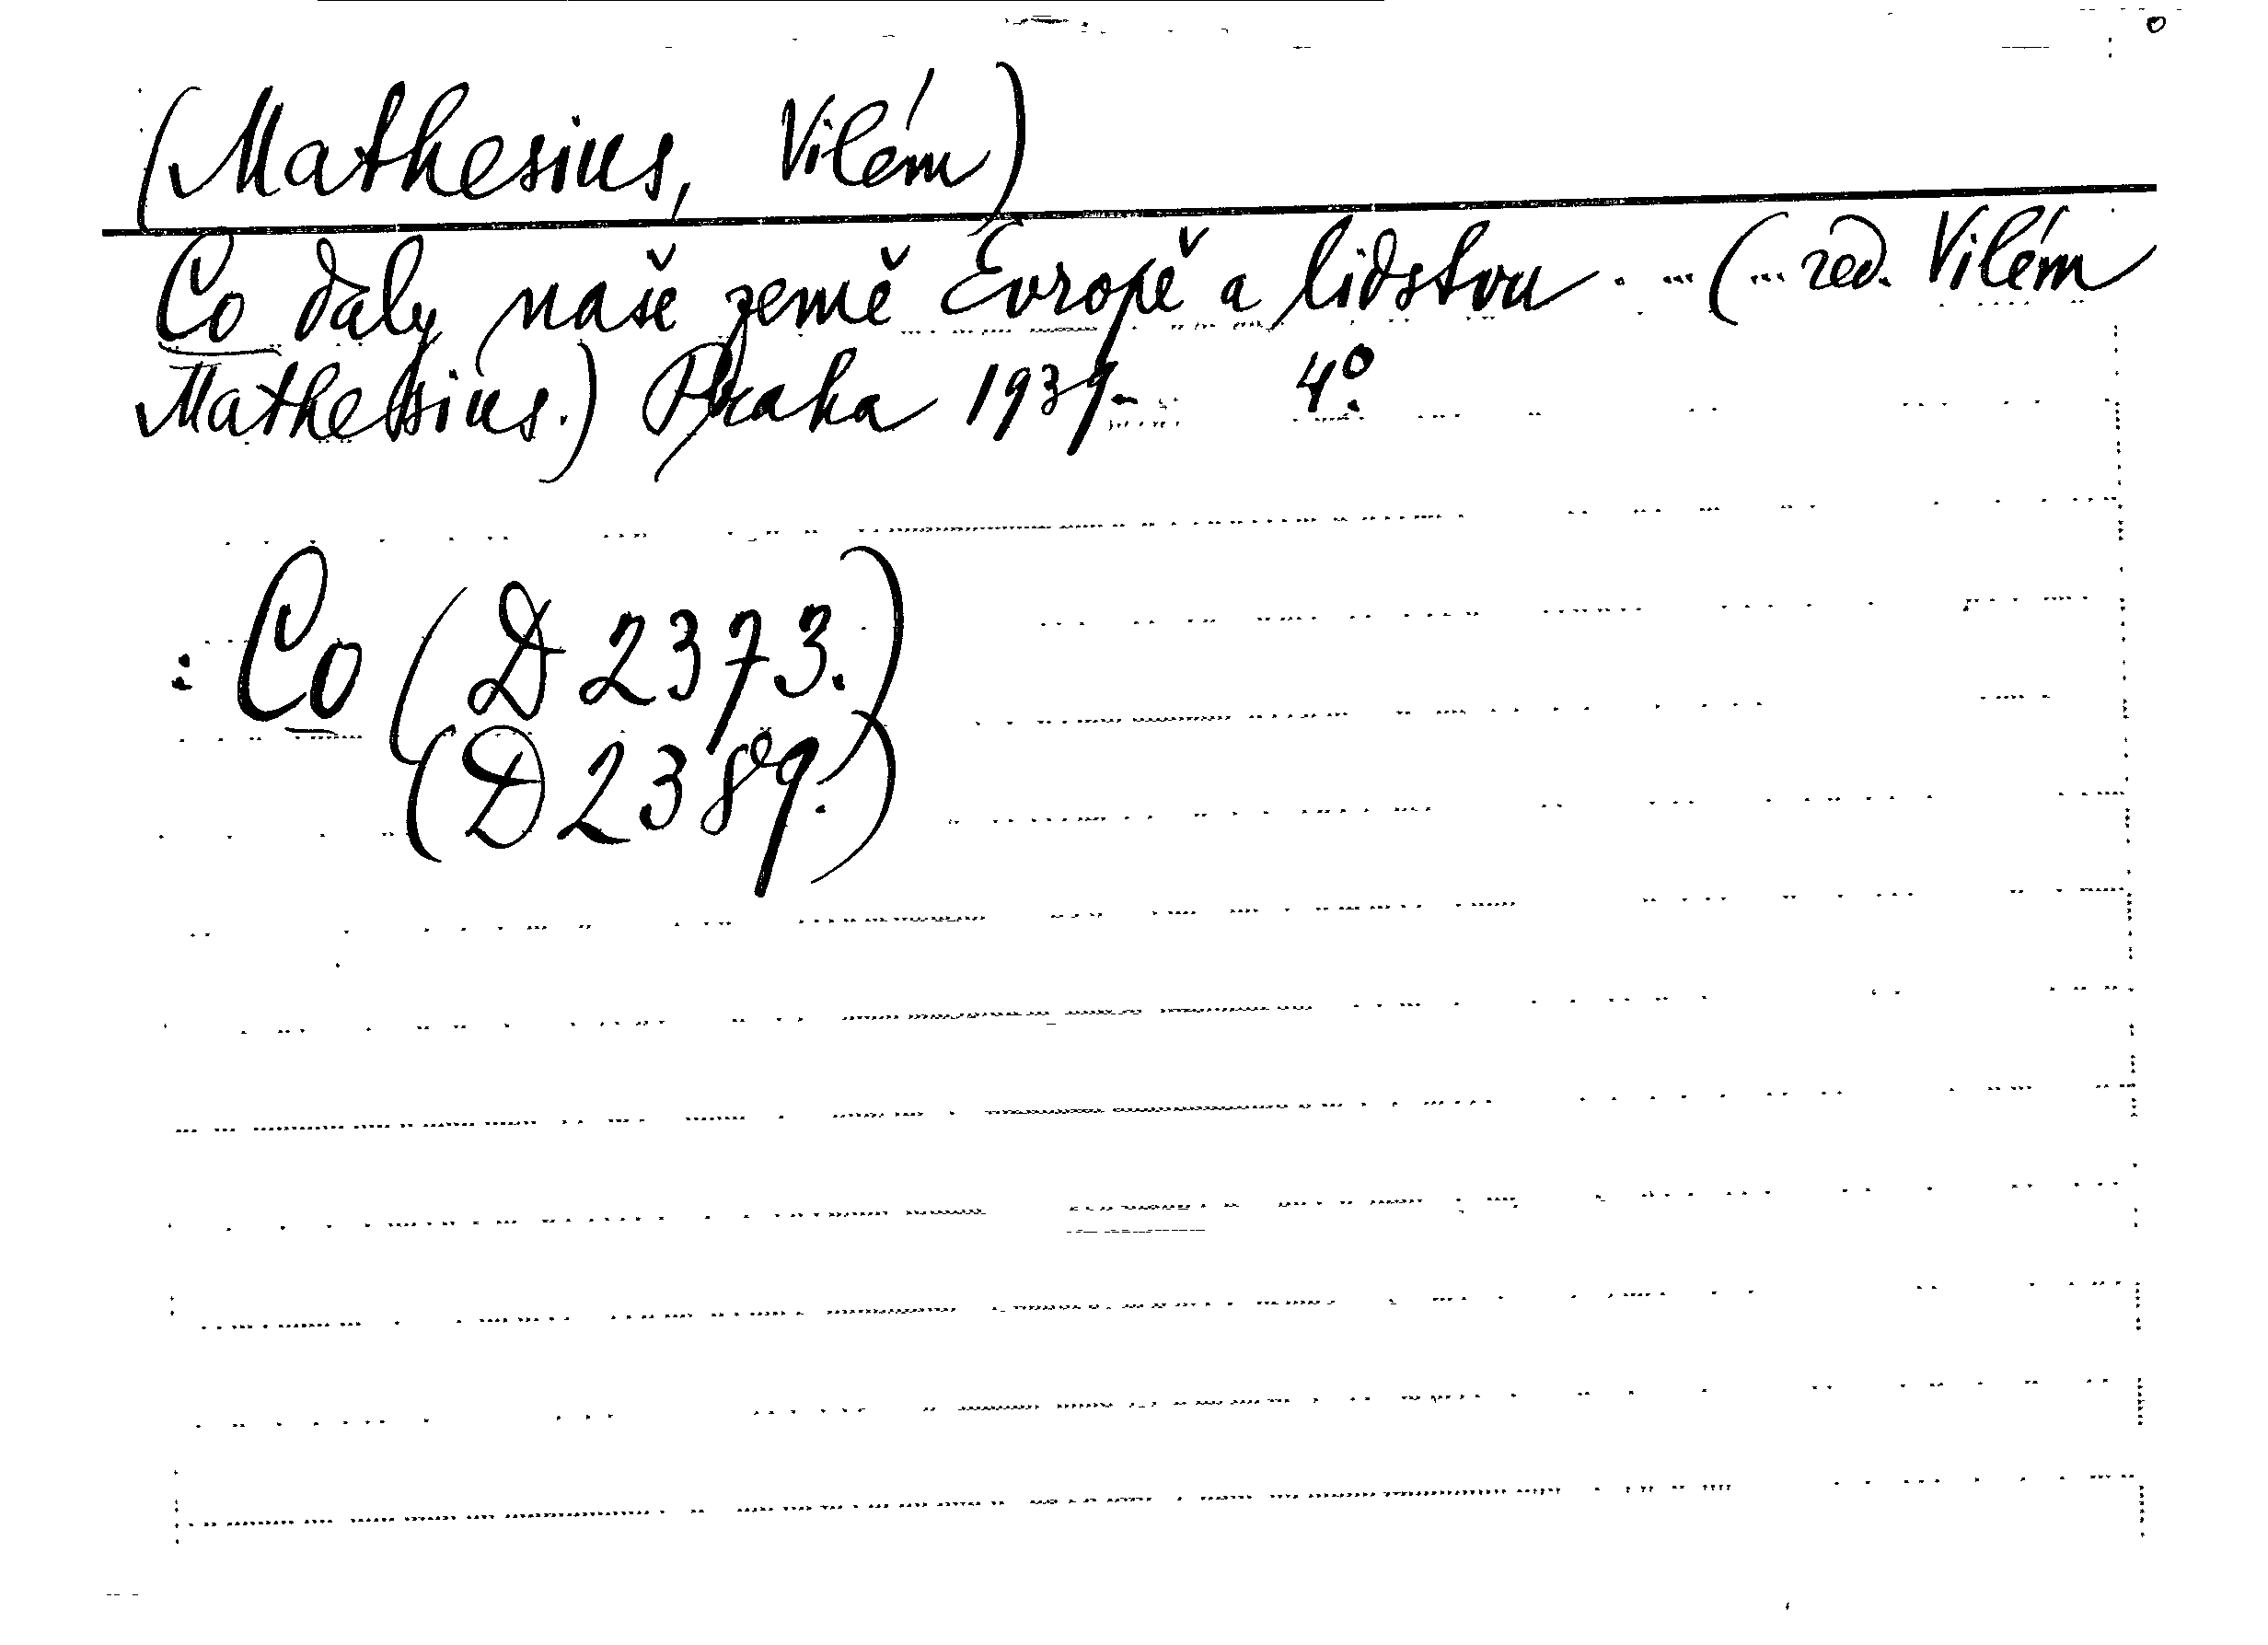 (Mathesius, Vilém)
Co daly naše země Evropě a lidstvu. ... (... red. Vilém
Mathesius.) Praha 1939- 4°.
: Co (D 2373.)
(D 2389.)